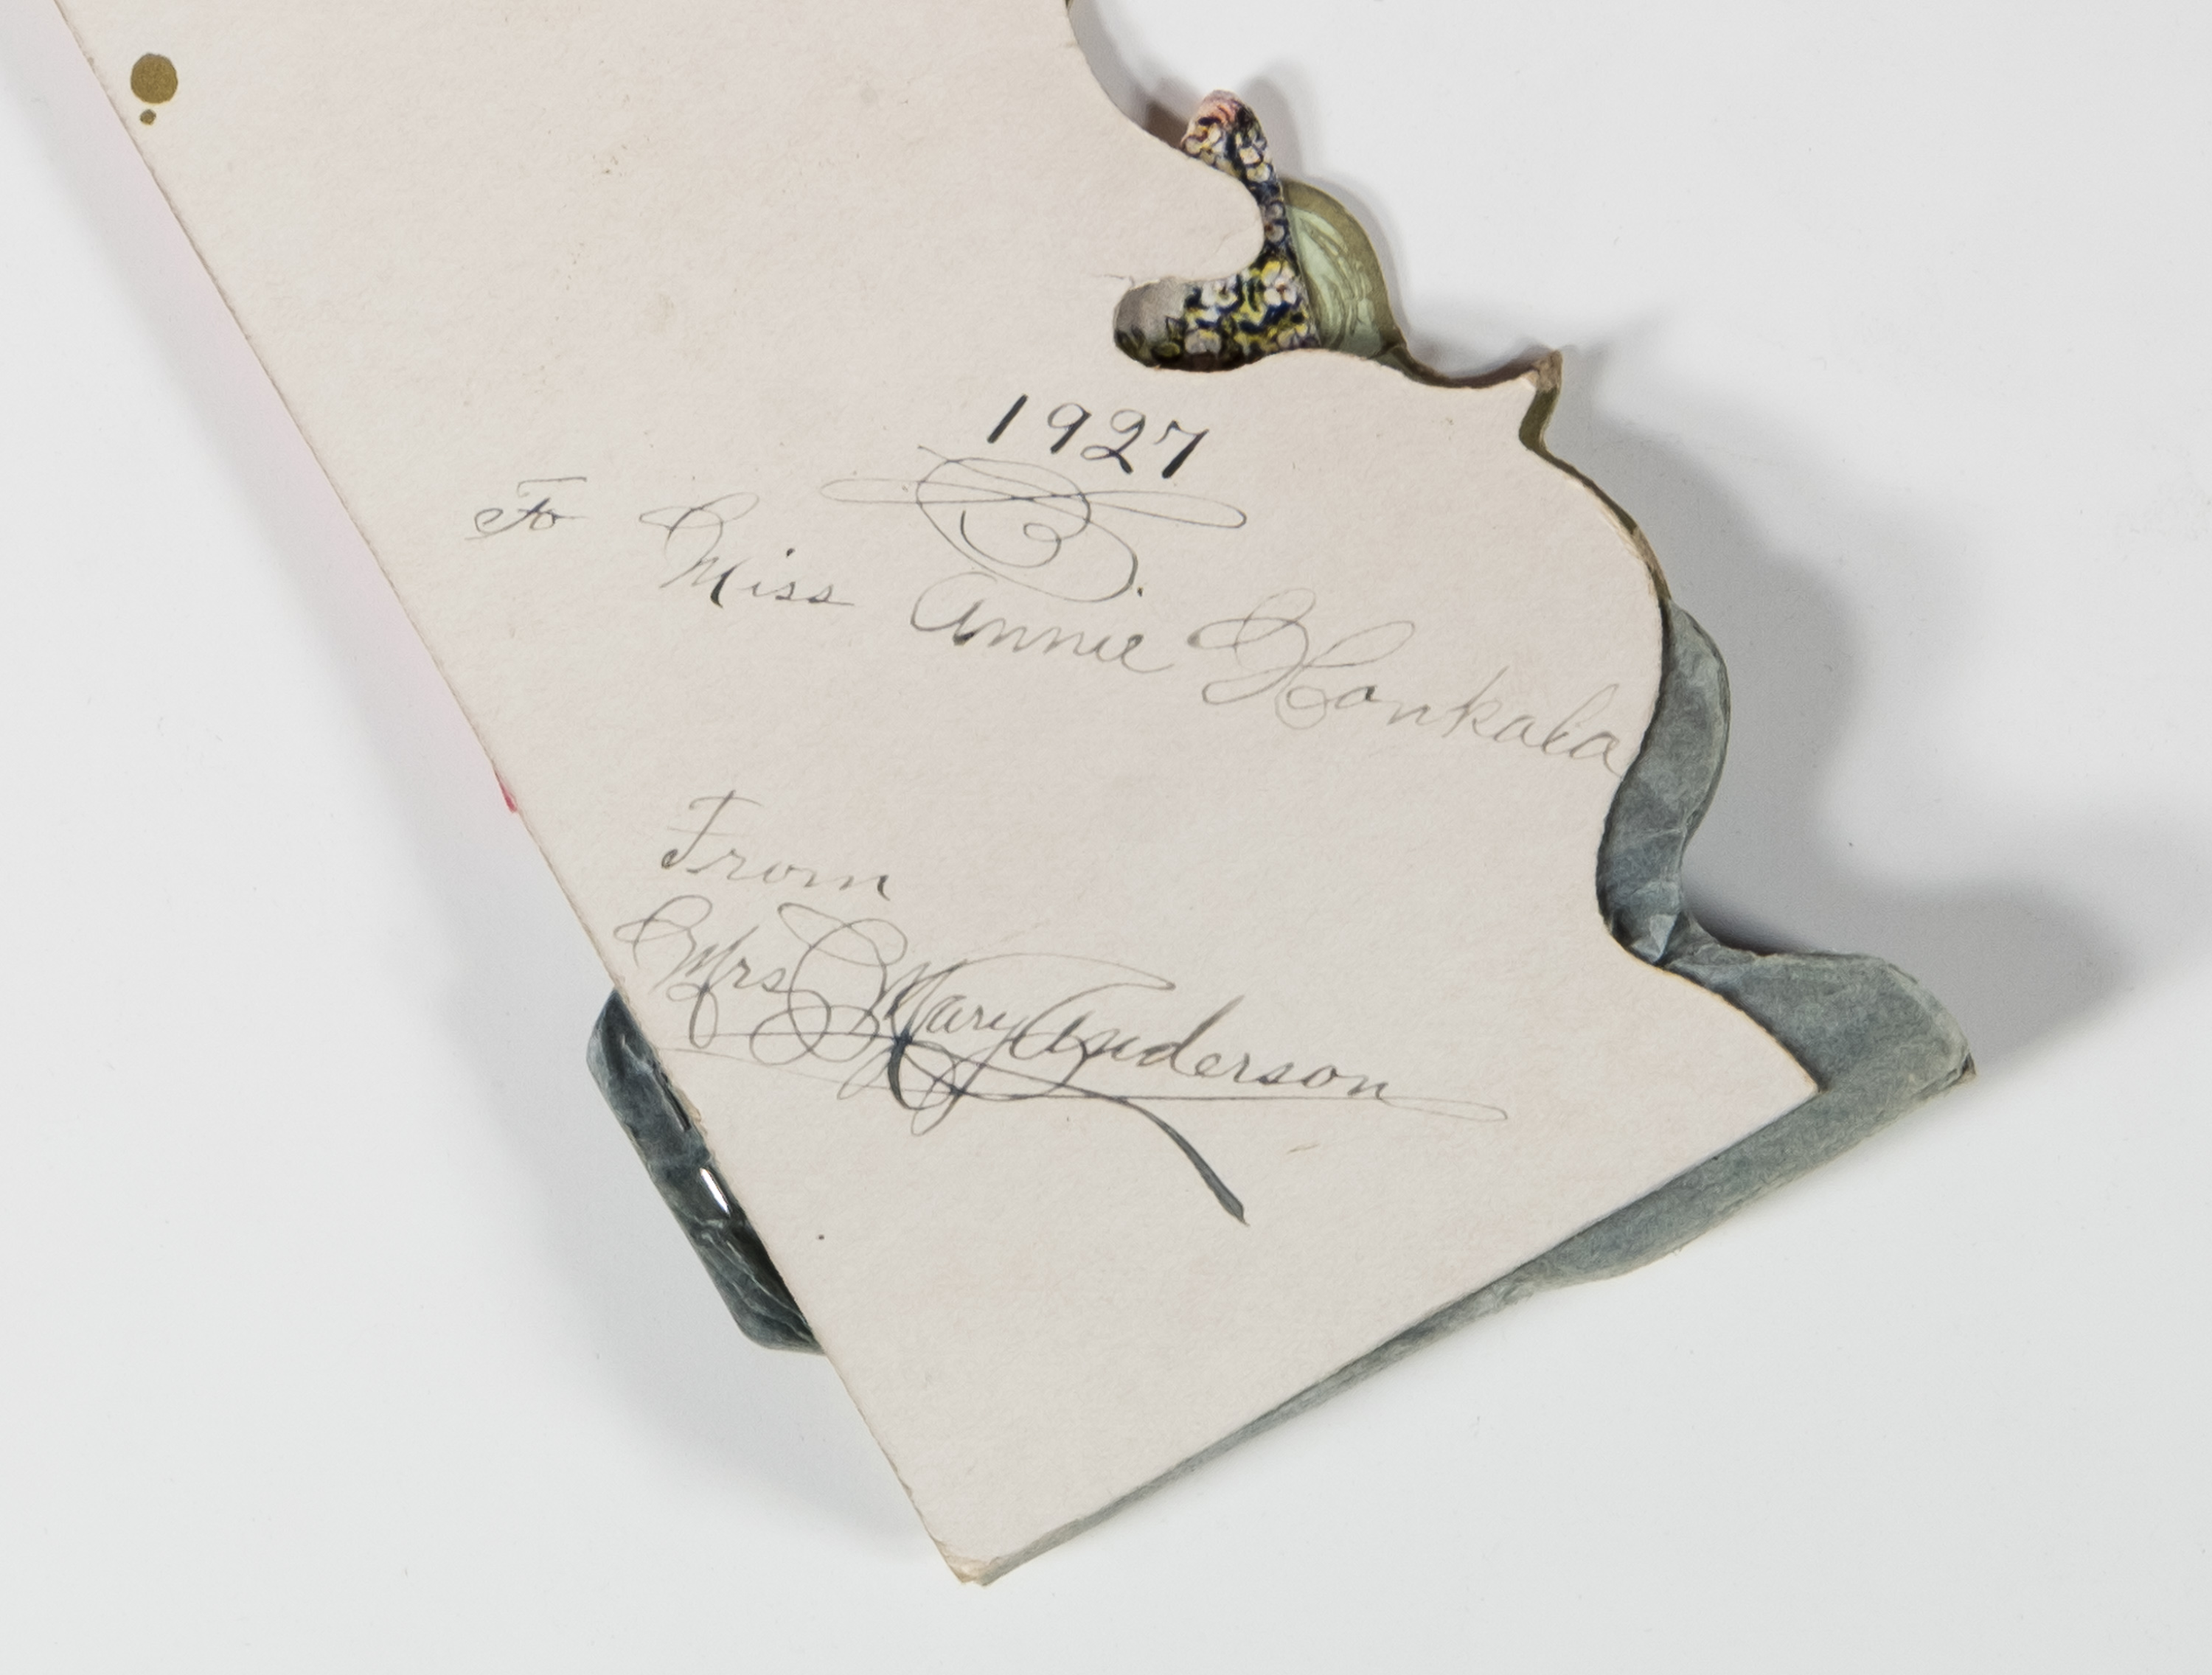 1927
To Miss Annie Honkala
From
Mrs Mary Anderson